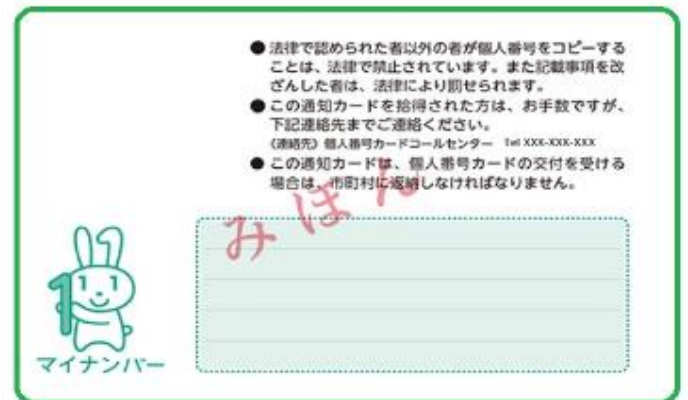 ●法律で認められた者以外の者が個人番号をコピーする
ことは、法律で禁止されています。また記載事項を改
ざんした者は、法律により罰せられます。
●この通知カードを拾得された方は、お手数ですが、
下記連絡先までご連絡ください。
（連絡先）個人番号カードコールセンター Tel XXX-XXX-XXX
●この通知カードは、個人番号カードの交付を受ける
場合は、市町村に返納しなければなりません。
みほん
1
マイナンバー